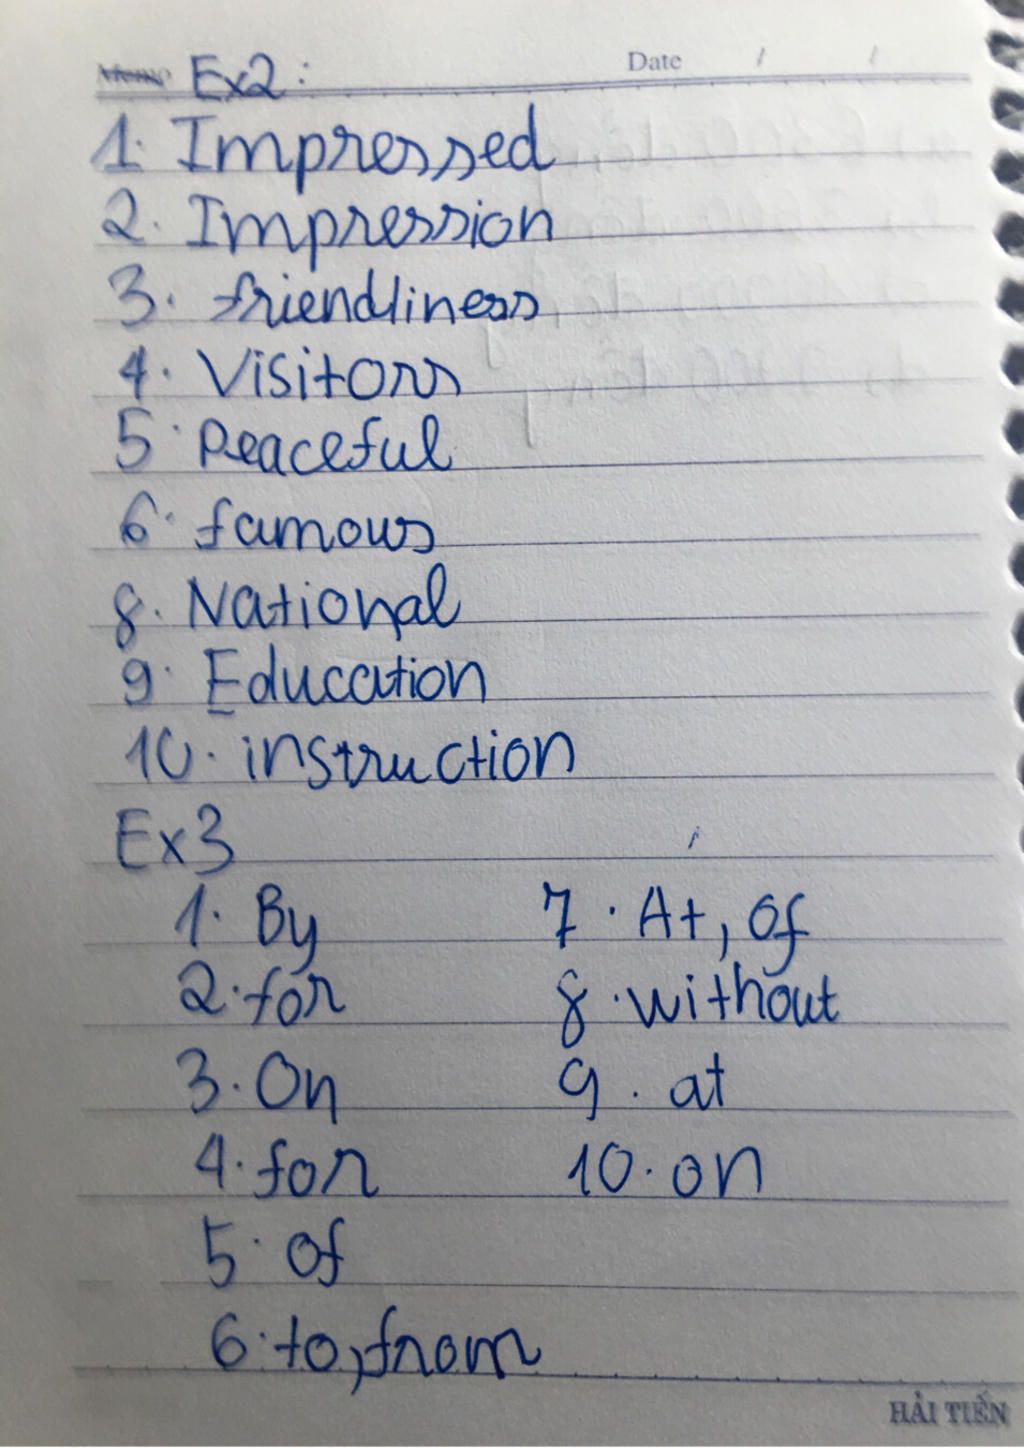 Memo Ex2: Date / /
1. Impressed
2. Impression
3. friendliness
4. Visitors
5. Peaceful
6. famous
8. National
9. Education
10. instruction
Ex3
1. By
2. for
3. On
4. for
5. Of
6. to, from
7. At, Of
8. without
9. at
10. on
HẢI TIẾN